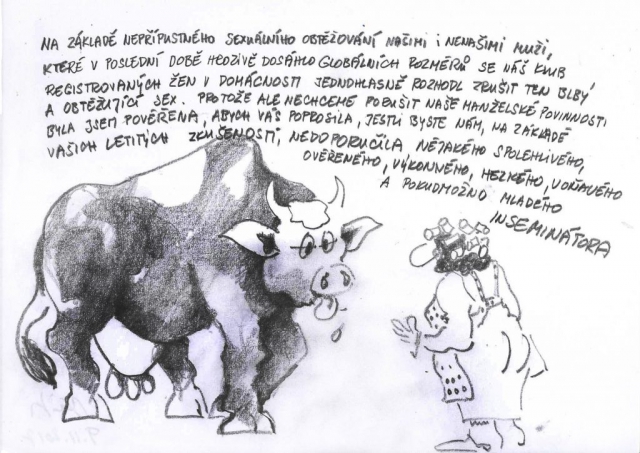 NA ZÁKLADĚ NEPŘÍPUSTNÉHO SEXUÁLNÍHO OBTĚŽOVÁNÍ NAŠIMI I NENAŠIMI MUŽI,
KTERÉ V POSLEDNÍ DOBĚ HROZIVĚ DOSÁHLO GLOBÁLNÍCH ROZMĚRŮ SE NÁŠ KLUB
REGISTROVANÝCH ŽEN V DOMÁCNOSTI JEDNOHLASNĚ ROZHODL ZRUŠIT TEN BLBÝ
A OBTĚŽUJÍCÍ SEX. PROTOŽE ALE NECHCEME PORUŠIT NAŠE MANŽELSKÉ POVINNOSTI
BYLA JSEM POVĚŘENA, ABYCH VÁS POPROSILA, JESTLI BYSTE NÁM, NA ZÁKLADĚ
VAŠICH LETITÝCH ZKUŠENOSTÍ, NEDOPORUČILA NĚJAKÉHO SPOLEHLIVÉHO,
OVĚŘENÉHO, VÝKONNÉHO, HEZKÉHO, VOŇAVÉHO
A POKUDMOŽNO MLADÉHO
INSEMINÁTORA